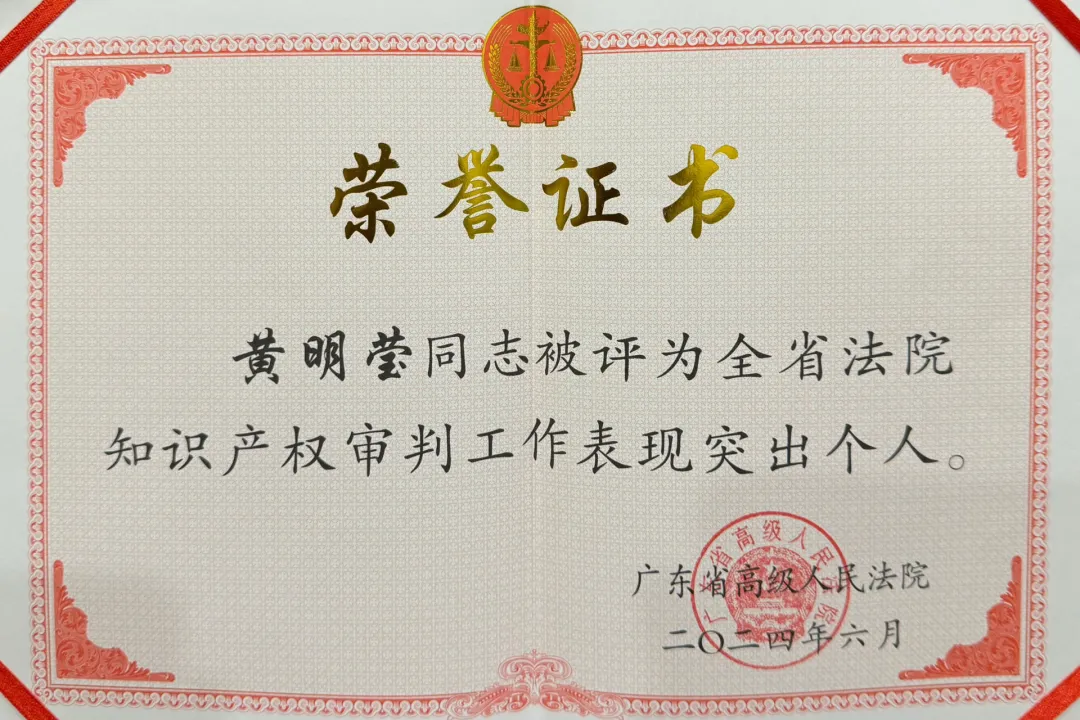 荣誉证书
黄明莹同志被评为全省法院
知识产权审判工作表现突出个人。
广东省高级人民法院
二〇二四年六月
广东省高级人民法院